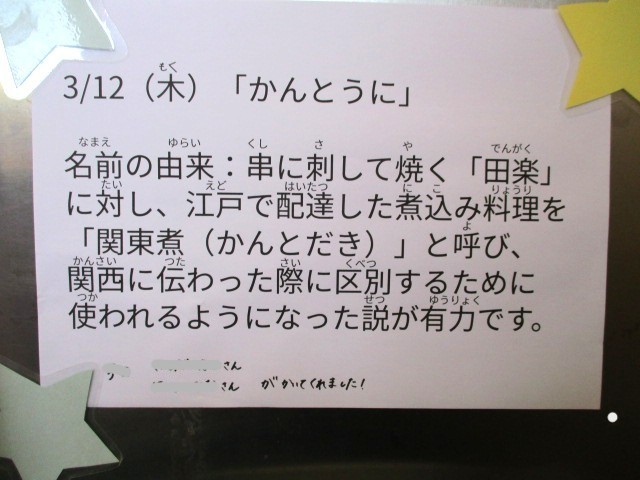 3/12（木）「かんとうに」
名前の由来：串に刺して焼く「田楽」
に対し、江戸で配達した煮込み料理を
「関東煮（かんとだき）」と呼び、
関西に伝わった際に区別するために
使われるようになった説が有力です。
さん
さん がかいてくれました！